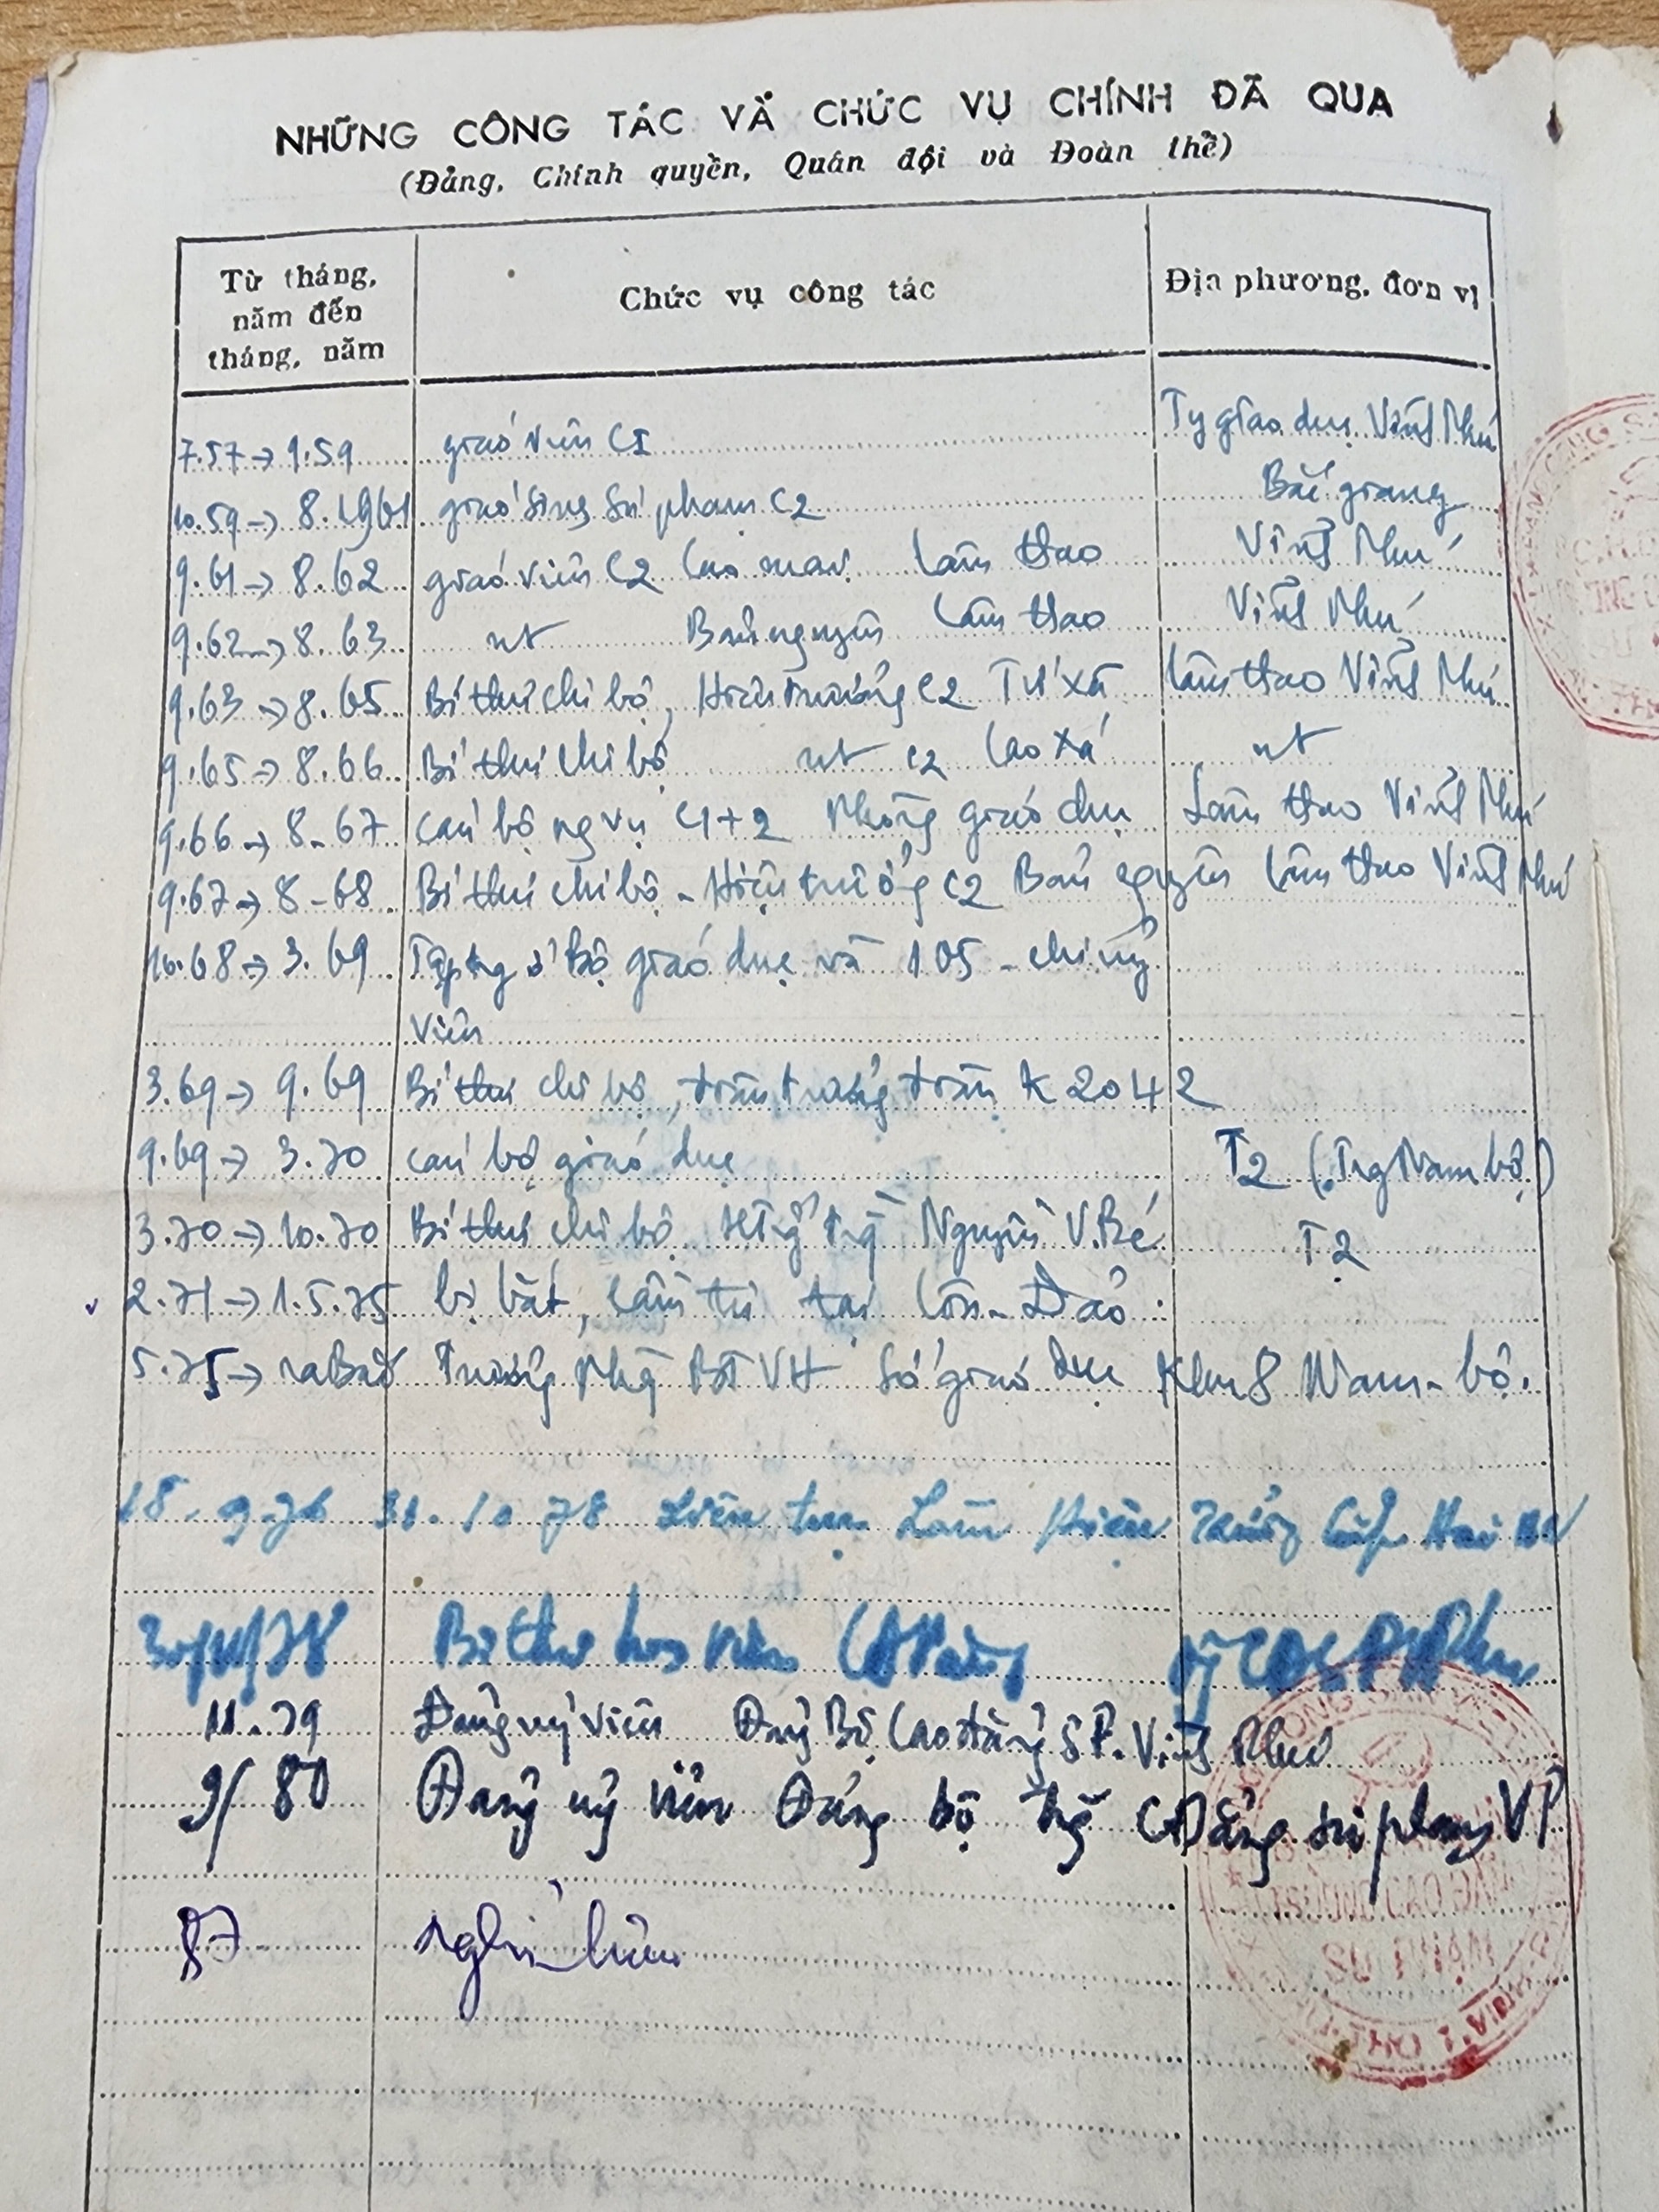 NHỮNG CÔNG TÁC VÀ CHỨC VỤ CHÍNH ĐÃ QUA
(Đảng, Chính quyền, Quân đội và Đoàn thể)
Từ tháng, năm đến tháng, năm Chức vụ công tác Địa phương, đơn vị
7.57 → 9.59 giáo viên C1 Ty giáo dục Vĩnh Phú
10.59 → 8.1961 giáo sinh sư phạm C2 Bắc giang
9.61 → 8.62 giáo viên C2 Cao mại Lâm thao Vĩnh Phú
9.62 → 8.63 nt Bản nguyên Lâm thao Vĩnh Phú
9.63 → 8.65 Bí thư chi bộ, Hiệu trưởng C2 Tứ xã Lâm thao Vĩnh Phú
9.65 → 8.66 Bí thư chi bộ nt C2 Cao xá nt
9.66 → 8-67 cán bộ ng vụ C1+2 Phòng giáo dục Lâm thao Vĩnh Phú
9.67 → 8-68 Bí thư chi bộ - Hiệu trưởng C2 Bản nguyên Lâm thao Vĩnh Phú
10.68 → 3.69 ở Bộ giáo dục và 105 - chi ủy
viên
3.69 → 9.69 Bí thư chi bộ, đoàn trưởng đoàn K 2042
9.69 → 3.70 cán bộ giáo dục T2 (Trg Nam bộ)
3.70 → 10.70 Bí thư chi bộ Nguyễn V. Bé T2
2.71 → 1.5.75 bị bắt, cầm tù tại Côn-Đảo.
5.75 → ra Bắc Trưởng Phg BTVH Sở giáo dục Khu 8 Nam-bộ.
18.9.76 31.10.78 Liên tục Làm Hiệu Trưởng Cấp Hai
Bí thư
11.79 Đảng uỷ viên Đảng Bộ Cao đẳng SP. Vĩnh Phú
9/80 Đảng uỷ viên Đảng bộ trg CĐẳng sư phạm VP
87 nghỉ hưu